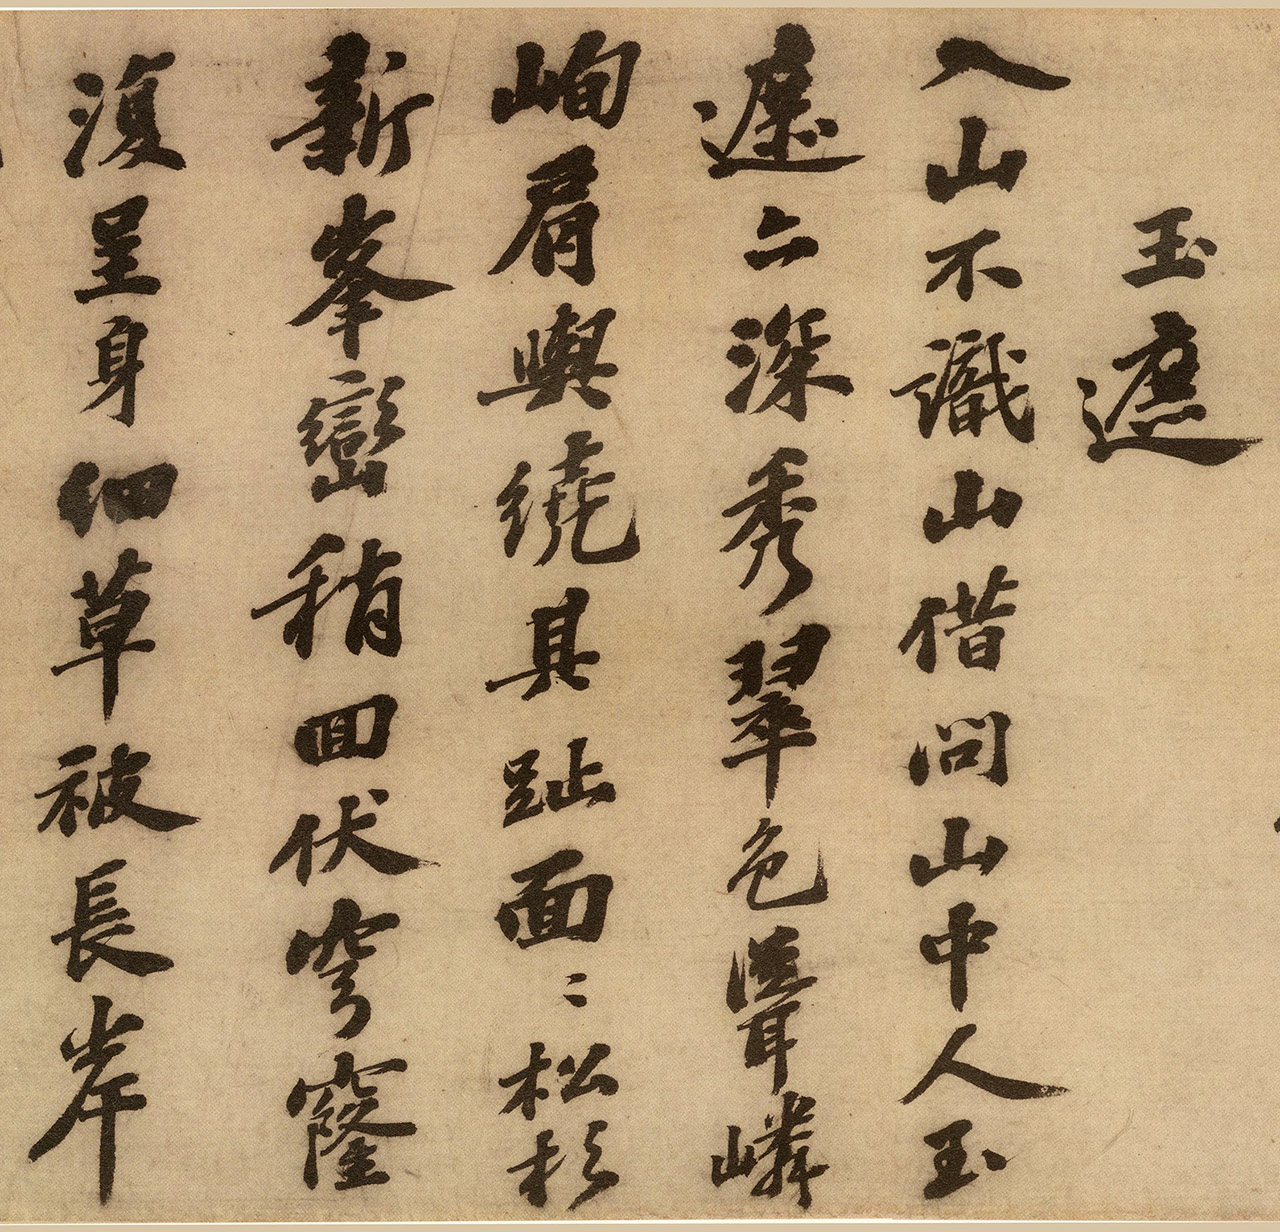 玉遮
入山不識山借問山中人玉
遮亦深秀翠色聳嶙
峋肩輿繞其趾面〻松杉
新峯巒稍回伏穹窿
復呈身細草被長岸